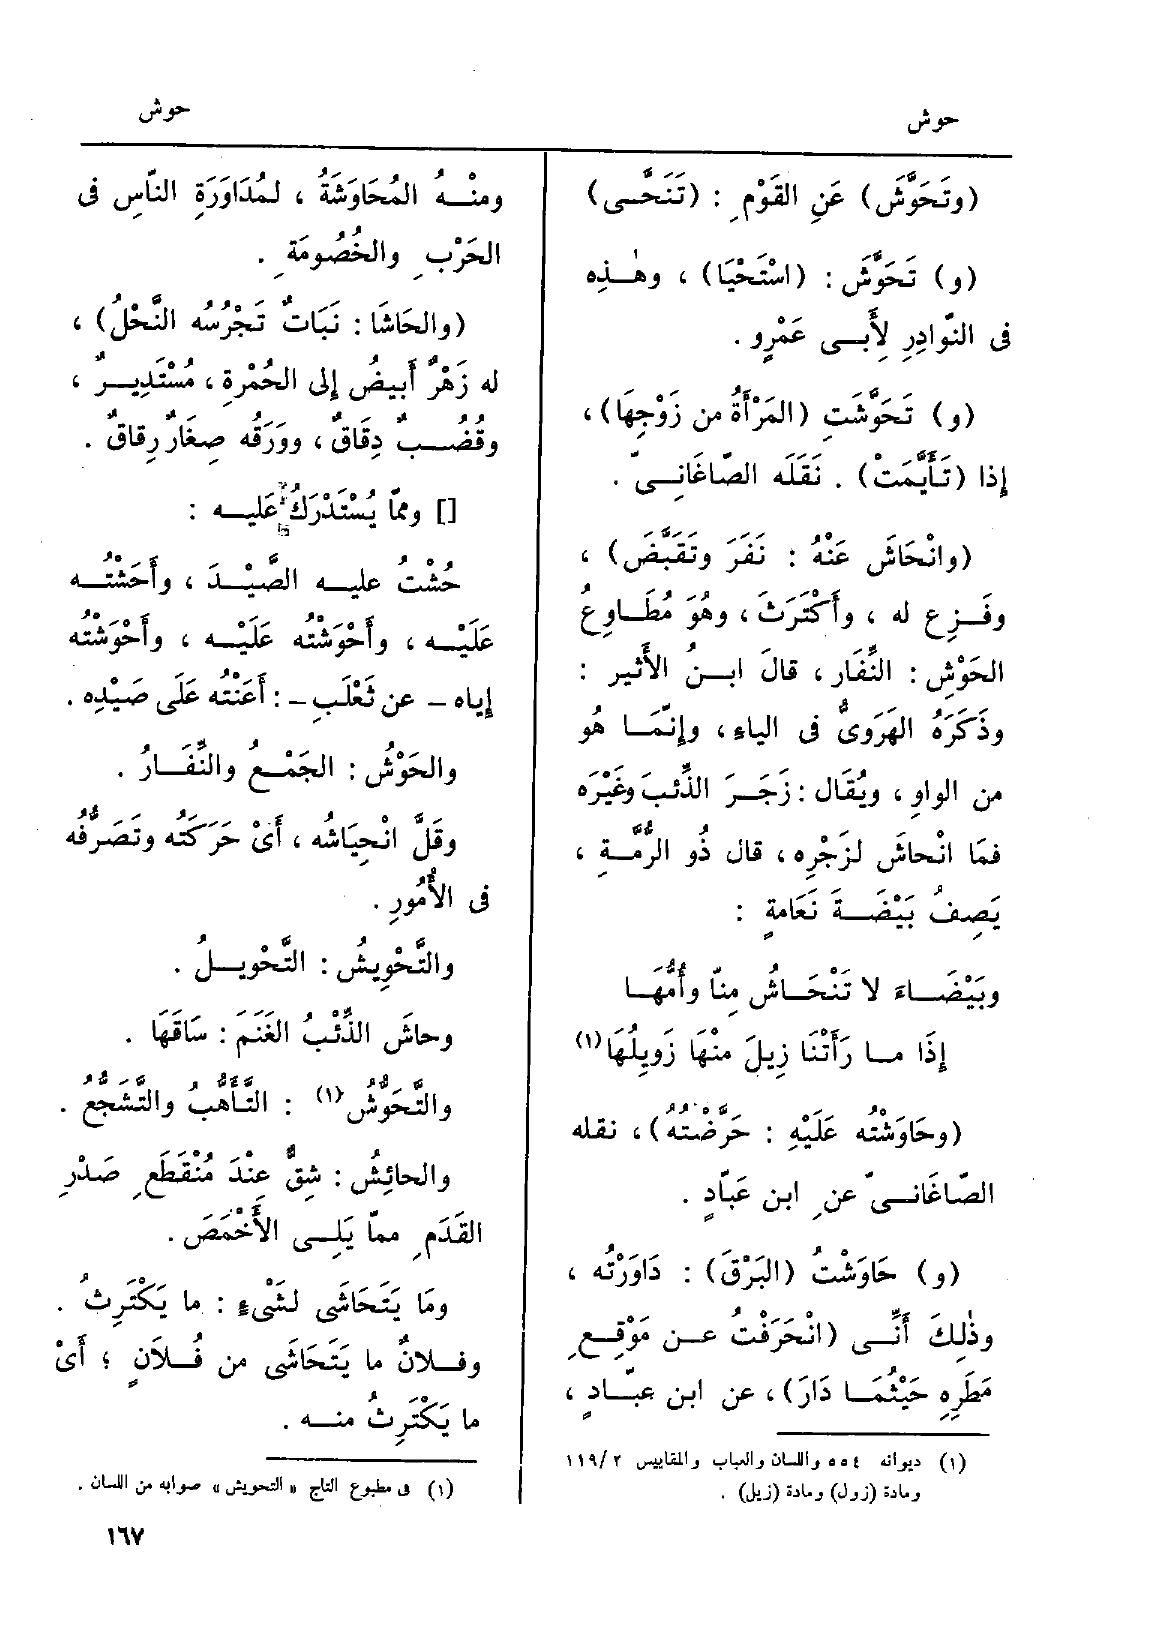 حوش
حوش
(وتَحَوَّشَ) عَنِ القَوْمِ : (تَنَحَّى)
(و) تَحَوَّشَ : (اسْتَحْيَا) ، وهٰذِه
فى النَّوادِرِ لِأَبِى عَمْرٍو .
(و) تَحَوَّشَتِ (المَرْأَةُ من زَوْجِهَا) ،
إِذا (تَأَيَّمَتْ) . نَقَلَه الصّاغَانِىّ .
(وانْحَاشَ عَنْهُ : نَفَرَ وتَقَبَّضَ) ،
وفَزِع له ، وأَكْتَرَثَ ، وهُوَ مُطَاوِعُ
الحَوْشِ : النِّفَار ، قالَ ابنُ الأَثير :
وذَكَرَهُ الهَرَوىُّ فى الياءِ ، وإِنَّمَا هُو
من الواوِ ، ويُقَال : زَجَرَ الذِّئبَ وغَيْرَه
فمَا انْحاشَ لزَجْرِه ، قال ذُو الرُّمَّةِ ،
يَصِفُ بَيْضَةَ نَعَامةٍ :
وبَيْضَاءَ لا تَنْحَاشُ مِنّا وأُمُّهَا
إِذَا ما رَأَتْنَا زِيلَ منْهَا زَوِيلُهَا (١)
(وحَاوَشْتُه عَلَيْهِ : حَرَّضْتُهُ) ، نقله
الصّاغَانىّ عنِ ابن عَبّادٍ .
(و) حَاوَشْتُ (البَرْقَ) : دَاوَرْتُه ،
وذٰلِكَ أَنِّى (انْحَرَفْتُ عن مَوْقِعِ
مَطَرِهِ حَيْثُمَا دَارَ) ، عن ابن عبّادٍ ،
(١) ديوانه ٥٥٤ واللسان والعباب والمقاييس ١١٩/٢
ومادة (زول) ومادة (زيل) .
ومنْهُ المُحَاوَشَةُ ، لمُدَاوَرَةِ النّاسِ فى
الحَرْبِ والخُصُومَةِ .
(والحَاشَا : نَبَاتٌ تَجْرُسُه النَّحْلُ) ،
له زَهْرٌ أَبيضُ إِلى الحُمْرةِ ، مُسْتَدِيرٌ ،
وقُضُبٌ دِقَاقٌ ، ووَرَقُه صِغَارٌ رِقاقٌ .
[] وممّا يُسْتَدْرَكُ عَليه :
حُشْتُ عليه الصَّيْدَ ، وأَحَشْتُه
عَلَيْه ، وأَحْوَشْتُه عَلَيْه ، وأَحْوَشْتُه
إِياه – عن ثَعْلَبٍ – : أَعَنْتُه عَلَى صَيْدِه .
والحَوْشُ : الجَمْعُ والنِّفَارُ .
وقَلَّ انْحِيَاشُه ، أَىْ حَرَكَتُه وتَصَرُّفُه
فى الأُمُورِ .
والتَّحْوِيشُ : التَّحْوِيلُ .
وحاشَ الذِّئْبُ الغَنَمَ : سَاقَهَا .
والتَّحَوُّشُ (١) : التَّأَهُّبُ والتَّشَجُّعُ .
والحائِشُ : شِقٌّ عِنْدَ مُنْقَطَعِ صَدْرِ
القَدَمِ ممّا يَلِى الأَخْمَصَ .
ومَا يَتَحَاشَى لشَىْءٍ : ما يَكْتَرِثُ .
وفلانٌ ما يَتَحَاشَى من فُلاَنٍ ؛ أَىْ
ما يَكْتَرِثُ منه .
(١) فى مطبوع التاج « التحويش » صوابه من اللسان .
١٦٧